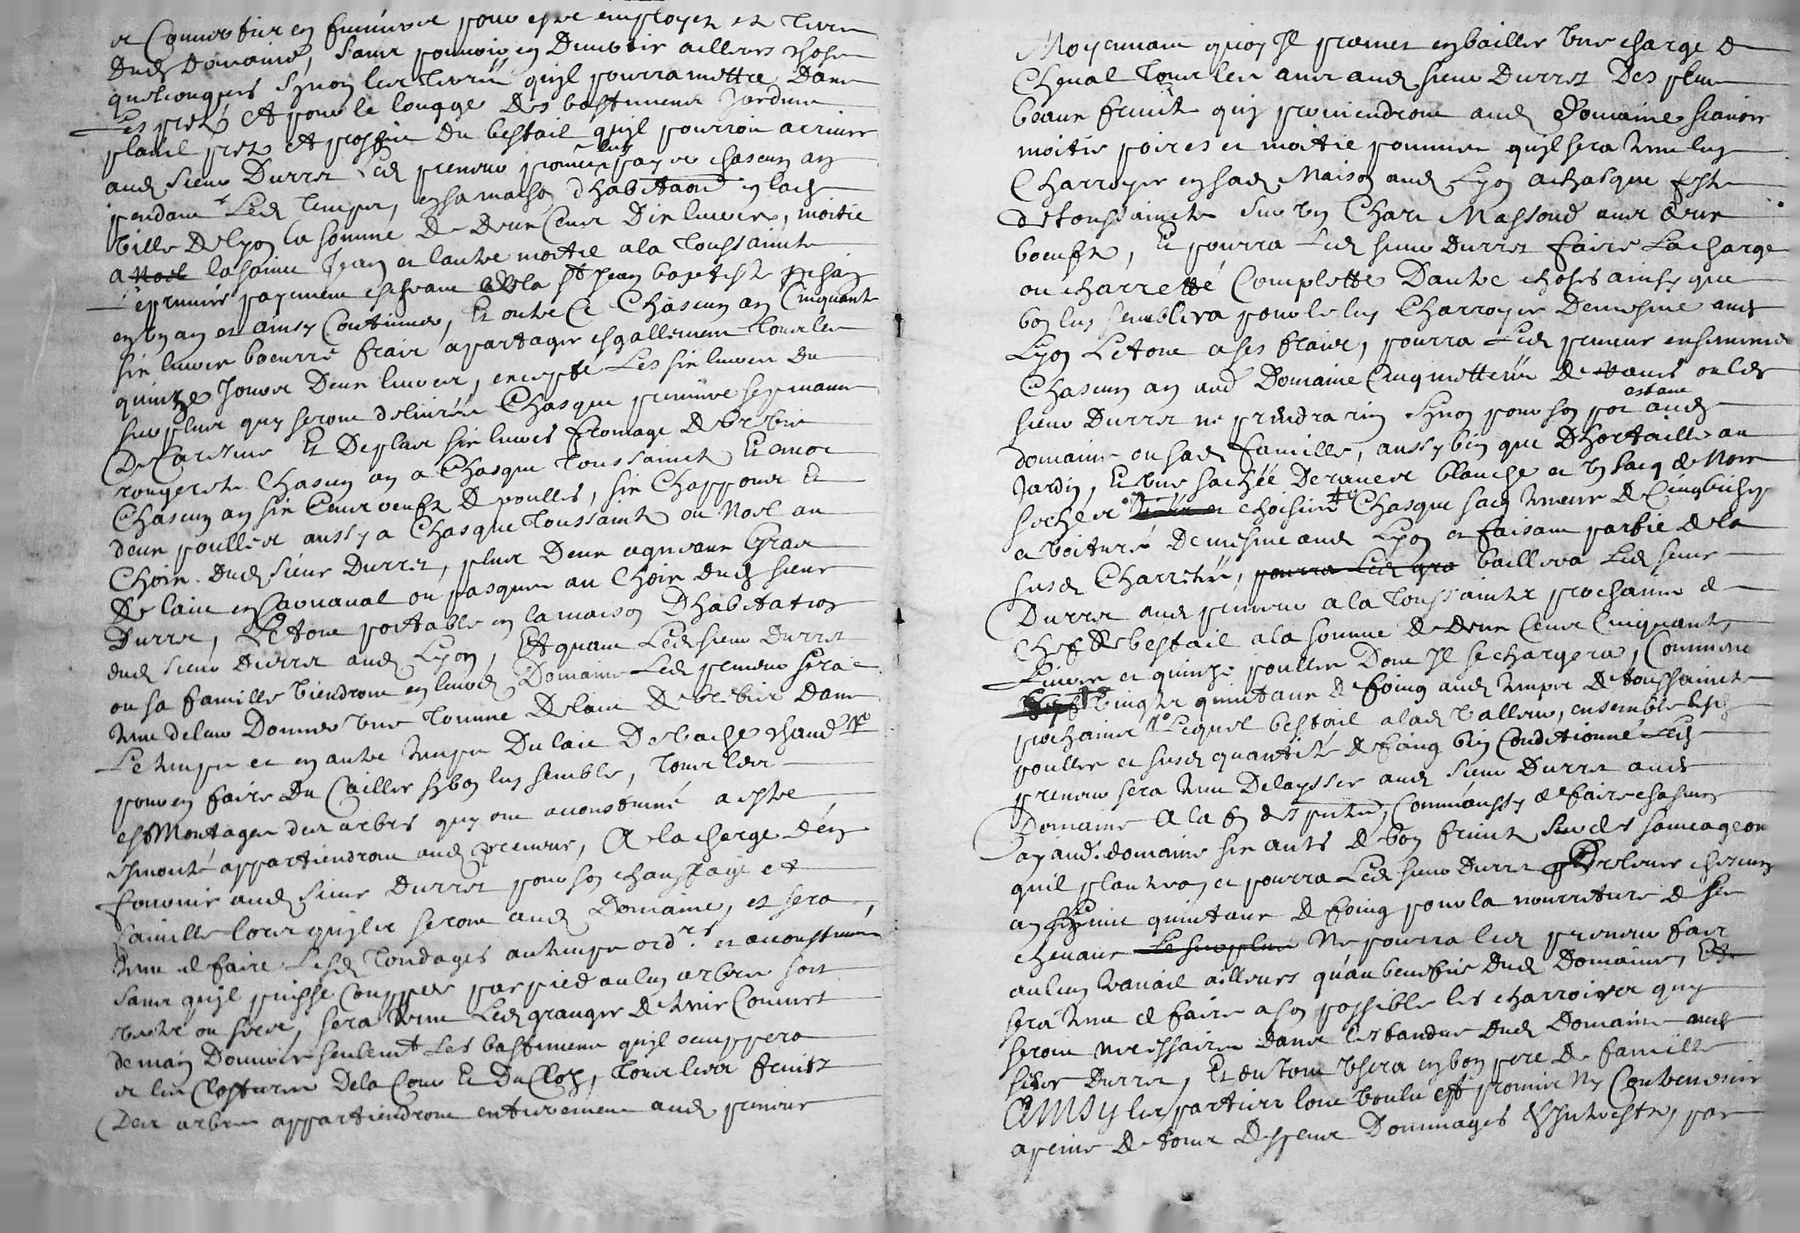 et Convertir en fumier pour estre employez et
Dud Domaine, sans pouvoir en Divertir ailleurs chose
quelconques synon les qu'il pourra mettre Dans
Les prez et pour le louage des bastimens Jardins
prez et proffit du bestail qu'il pourroit arriver
aud sieur Durret Led preneur promet luy payer chascun an
pendant Led temps, en sa maison d'habitaon en lad
Ville de Lyon la somme De Deux Cent Dix livres, moitie
a Noel la sainct Jean et l'autre moitie a la Toussaincts
Le premier payement escheant a la St Jean baptiste prochain
en un an et ainsy Continuer, Et outre Ce Chascun an Cinquante
six livres beurre frais a partager esgallement Tous les
quinze Jours Deux livres, excepte Les six livres du
surplus quy seront delivrées Chasque premiere sepmaine
De Caresme Et De plus six livres fromage De
Chascun an a Chasque Toussaincts Et encor
Chascun an six Cent oeufs De poulles, six Chappons Et
deux poulles aussy a Chasque Toussaincts ou Noel au
Choix Dud sieur Durret, plus Deux agneaux Gras
De laict en Carnaval ou pasques au Choix dud sieur
Durret, Le tout portable en la maison D'habitation
dud sieur Durret aud Lyon, Et quand Led sieur Durret
ou sa famille viendront en leurd Domaine Led preneur sera
tenu de leur Donner une Tomme De laict De brebis Dans
Le temps et en autre temps Du laict De vache chaud
pour en faire Du Cailler sy bon luy semble, Tous les
esMontages des arbres quy ont accoustumé a estre
esmonté appartiendront aud preneur, A la charge d'en
fournir aud sieur Durret pour son chauffage et
famille lors qu'ils seront aud Domaine, et sera
tenu de faire Lesd Tondages au temps ordres et accoustumé
sans qu'il puisse Coupper par pied aulcun arbre soit
verd ou sec, sera tenu Led granger De tenir Couvert
de main D'ouvrier seulemt Les bastimens qu'il occuppera
et les Clostures De la Cour Et Du Clos, Tous les fruits
Des arbres appartiendront entierement aud preneur
Moyennant quoy Il promet en bailler une charge De
Cheval Tous les ans aud sieur Durret Des plus
beaux fruits quy proviendront aud Domaine scavoir
moitie poires et moitie pommes qu'il sera tenu luy
Charroyer en sad Maison aud Lyon a chasque feste
de toussaincts sur un Char Massoud avec deux
boeufs, Et pourra Led sieur Durret faire La charge
ou charrette Complette D'autre choses ainsy que
bon luy semblera pour le luy Charroyer De mesme aud
Lyon Le tout a ses fraix, pourra Led preneur ensemencer
Chascun an aud Domaine Cinq De raves ou led
sieur Durret ne prendra rien synon pour son pot estant aud
domaine ou sad famille, aussy bien que D'hortaille au
Jardin, Et une sachée De raves blanche et un sacq de Noix
seches et choisies Chasque sacq tenant De Cinq bichets
et voituré De mesme aud Lyon et faisant partie de la
susd Charretée, pourra Led gra baillera Led sieur
Durret aud preneur a la Toussaincts prochaine de
Chef De bestail a la somme De Deux Cent Cinquante
Livres et quinze poulles Dont Il se chargera, Comme
Vingt quintaux De foing aud temps De toussaincts
prochaine Lequel bestail a lad valleur, ensemble lesd
poulles et susd quantité De foing bien Conditionné Led
preneur sera tenu Delaysser aud sieur Durret aud
Domaine A la fin des, Comme aussy de faire chascun
an aud domaine six ants De bon fruict Sur des sauvageons
qu'il plantera et pourra Led sieur Durret prelever chascun
an quintaux De foing pour la nourriture De ses
chevaux Le surplus Ne pourra led preneur faire
aulcun travail ailleurs qu'au benefice Dud Domaine, Et
sera tenu de faire a son possible les charroirer quy
seront necessaires Dans les Dud Domaine aud
sieur Durret, Et du tout usera en bon pere De famille
AINSY les parties l'ont voulu et promis Ny Contrevenir
a peine de tous Despens Dommages & Interests, par